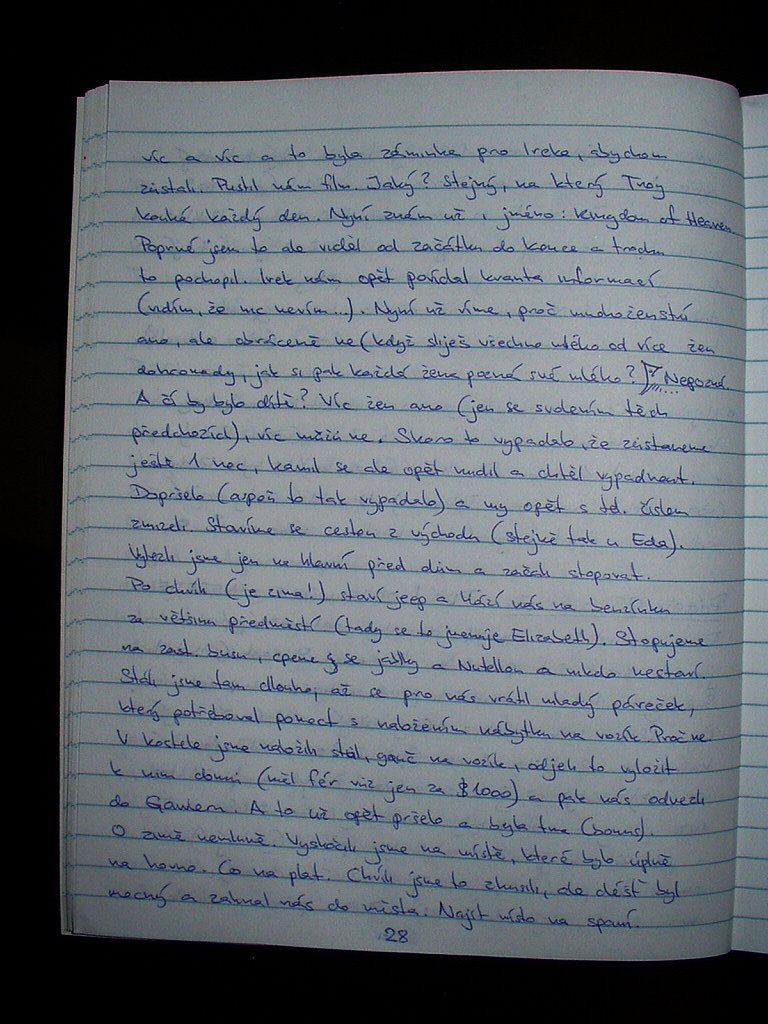 víc a víc a to byla záminka pro Ireka, abychom
zůstali. Pustil nám film. Jaký? Stejný, na který Troy
kouká každý den. Nyní znám už i jméno: Kingdom of Heaven
Poprvé jsem to ale viděl od začátku do konce a trochu
to pochopil. Irek nám opět povídal kvanta informací
(vidím, že nic nevím...). Nyní už víme, proč mnohoženství
ano, ale obráceně ne (když sliješ všechno mléko od více žen
dohromady, jak si pak každá žena pozná své mléko? Nepozná.
A čí by bylo dítě? Víc žen ano (jen se svolením těch
předchozích), víc mužů ne. Skoro to vypadalo, že zůstaneme
ještě 1 noc, Kamil se ale opět nudil a chtěl vypadnout.
Dopršelo (aspoň to tak vypadalo) a my opět s tel. číslem
zmizeli. Stavíme se cestou z východu (stejně tak u Eda).
Vylezli jsme jen na hlavní před dům a začali stopovat.
Po chvíli (je zima!) staví jeep a hází nás na benzínku
za většinu předměstí (tady se to jmenuje Elizabeth). Stopujeme
na zast. busu, cpeme se jablky a Nutellou a nikdo nestaví.
Stáli jsme tam dlouho, až se pro nás vrátil mladý páreček,
který potřeboval pomoct s naložením nábytku na vozík. Proč ne.
V kostele jsme naložili stůl, gauč na vozík, odjeli to vyložit
k nim domů (měl fér vůz jen za $1000) a pak nás odvezli
do Gawleru. A to už opět pršelo a byla tma (bonus).
O zimě nemluvě. Vyskočili jsme na místě, které bylo úplně
na hovno. Co na plat. Chvíli jsme to zkusili, ale déšť byl
mocný a zahnal nás do města. Najít místo na spaní.
28